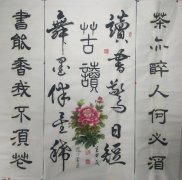 茶亦醉人何必酒
讀書驚日短
苦讀
舞墨伴星稀
書能香我不須花